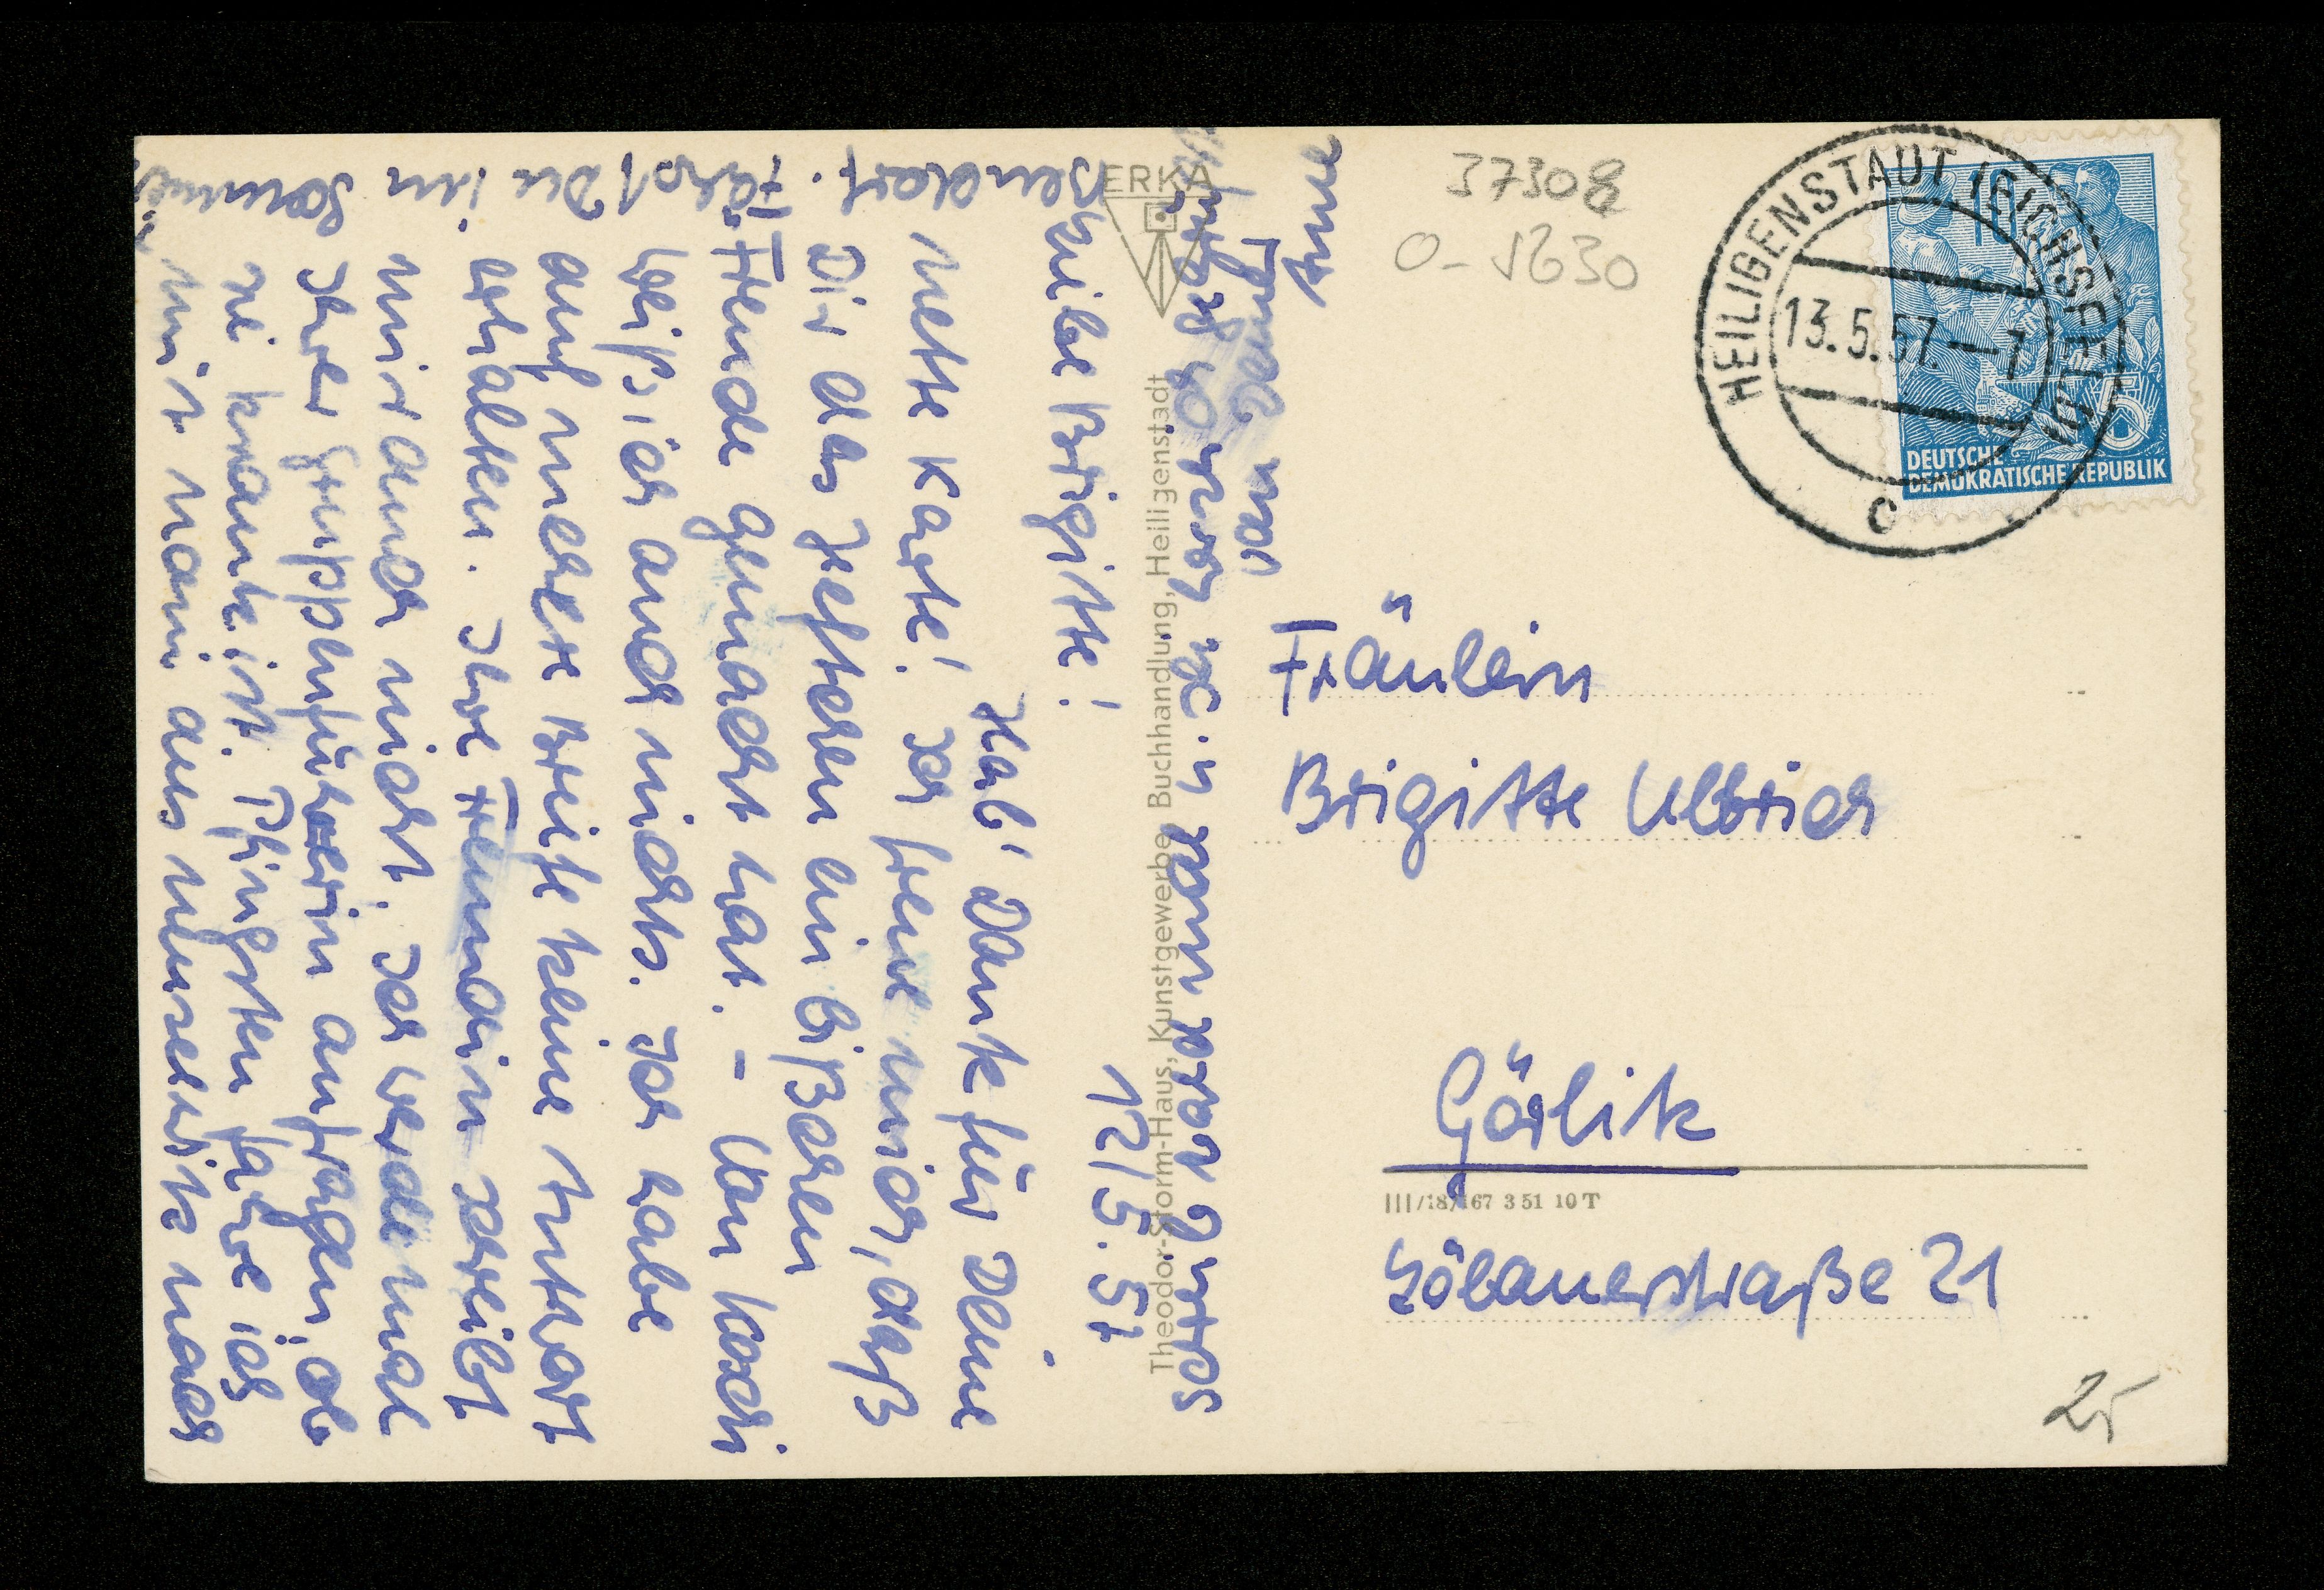 12/5.57
Liebe Brigitte!
Hab' Dank für Deine
nette Karte! Ich freue mich, daß
Dir das Heftchen ein bißchen
Freude gemacht hat. – Von Koschi
weiß ich auch nichts. Ich habe
auf unsere Briefe keine Antwort
erhalten. Ihre Freundin schreibt
mir auch nicht. Ich werde mal
Ihre Gruppenführerin anfragen, ob
sie krank ist. Pfingsten fahre ich
mit Mami aus nach
Du im
mal u. sei herzlich gegrüßt
von Deiner
Anne
ERKA
Theodor-Storm-Haus, Kunstgewerbe, Buchhandlung, Heiligenstadt
37308
O-5630
HEILIGENSTADT (EICHSFELD)
13.5.57.-1
c
10
5
DEUTSCHE
DEMOKRATISCHE REPUBLIK
Fräulein
Brigitte Ulbrich
Görlitz
III/18/167 3 51 10 T
Löbauerstraße 21
25